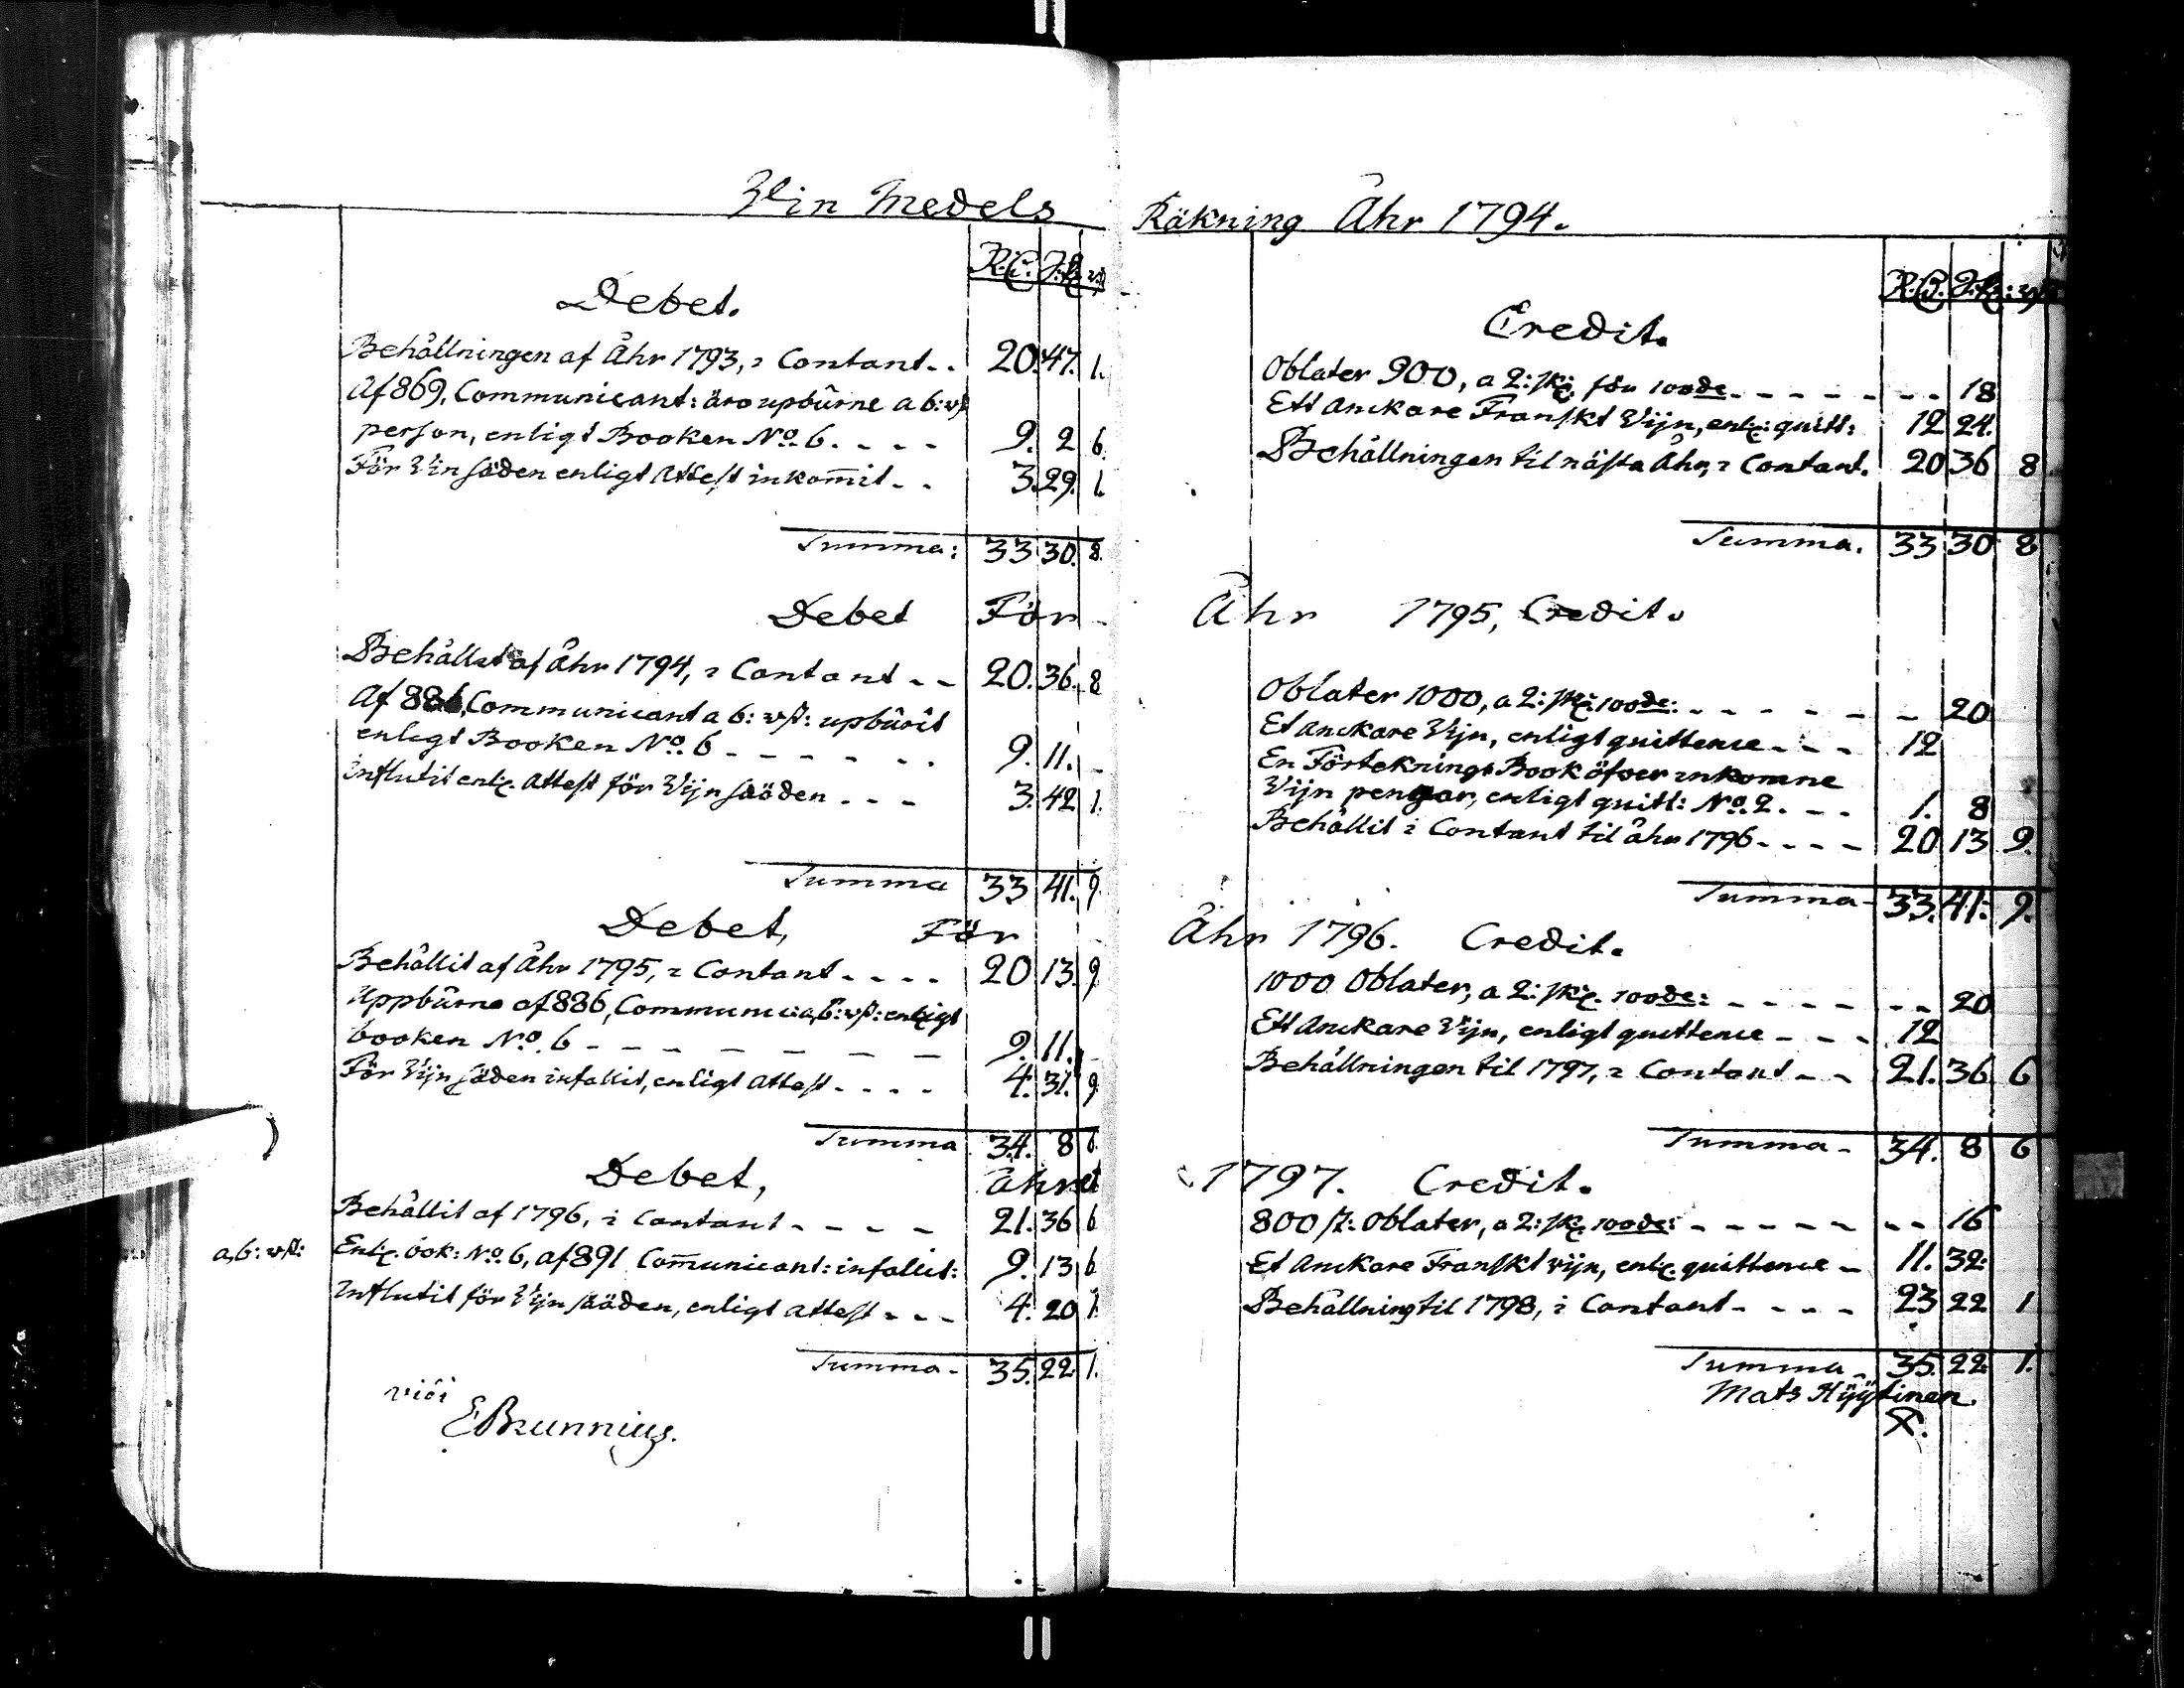 Vin Medels Räkning Åhr 1794.
R.D. Sk. rst
Debet.
Behållningen af Åhr 1793, i Contant.. 20. 47. 1.
Af 869, Communicant: äro upbûrne a 6: rst
person, enligt Booken No. 6. - - - 9. 2 6.
För Vin säden enligt Attest inkom̄it - - 3. 29. 1.
Summa: 33 30. 8.
Debet För
Behållet af Åhr 1794, i Contant - - 20. 36. 8
Af 886, Communicant a 6: rst: upbûrit
enligt Booken No. 6 - - - - - - 9. 11. -
Influtit enl. Attest för Vijn saöden - - - 3. 42 1.
Summa 33 41. 9.
Debet, För
Behållit af Åhr 1795, i Contant - - - - 20 13. 9
Uppbûrne af 886, Communic: a, 6: rst: enligt
booken No. 6 - - - - - - - 9. 11. -
För Vijn säden infallit, enligt Attest - - - - 4. 31. 9.
Summa 34. 8 6.
Debet, Åhret
Behållit af 1796, i Contant - - - - 21. 36 6
a, 6: rst: Enl. book: No. 6, af 891 Com̄unicant: infallit: 9. 13 6
Influtit för Vijn saöden, enligt attest - - - 4. 20 1.
Summa - 35. 22. 1.
EBrunnius.
R.D. Sk: rst
Credit.
Oblater 900, a 2: sk. för 100de - - - - - - - - 18
Ett Anckare Franskt Vijn, enl: quitt: 12 24.
Behållningen til nästa Åhr, i Contant. 20 36 8
Summa. 33 30 8
Åhr 1795, Credit.
Oblater 1000, a 2: sk. 100de: - - - - - - - 20
Et Anckare Vijn, enligt quittence - - - 12
En Förteknings Book öfver inkomne
Vijn pengar, enligt quitt: No. 2. - - 1. 8
Behållit i Contant til åhr 1796 - - - - 20 13 9.
Summa - 33. 41. 9.
Åhr 1796. Credit.
1000 Oblater, a 2: sk. 100de: - - - - - - - 20
Ett Anckare Vijn, enligt quittence - - - 12
Behållningen til 1797, i Contant - - 21. 36 6
Summa - 34. 8 6
1797. Credit.
800 st: Oblater, a 2: sk. 100de: - - - - - - - 16
Et Anckare Franskt vijn, enl. quittence - 11. 32.
Behållning til 1798, i Contant - - - - 23 22 1
Summa - 35. 22. 1.
Mats Hÿÿtinen.